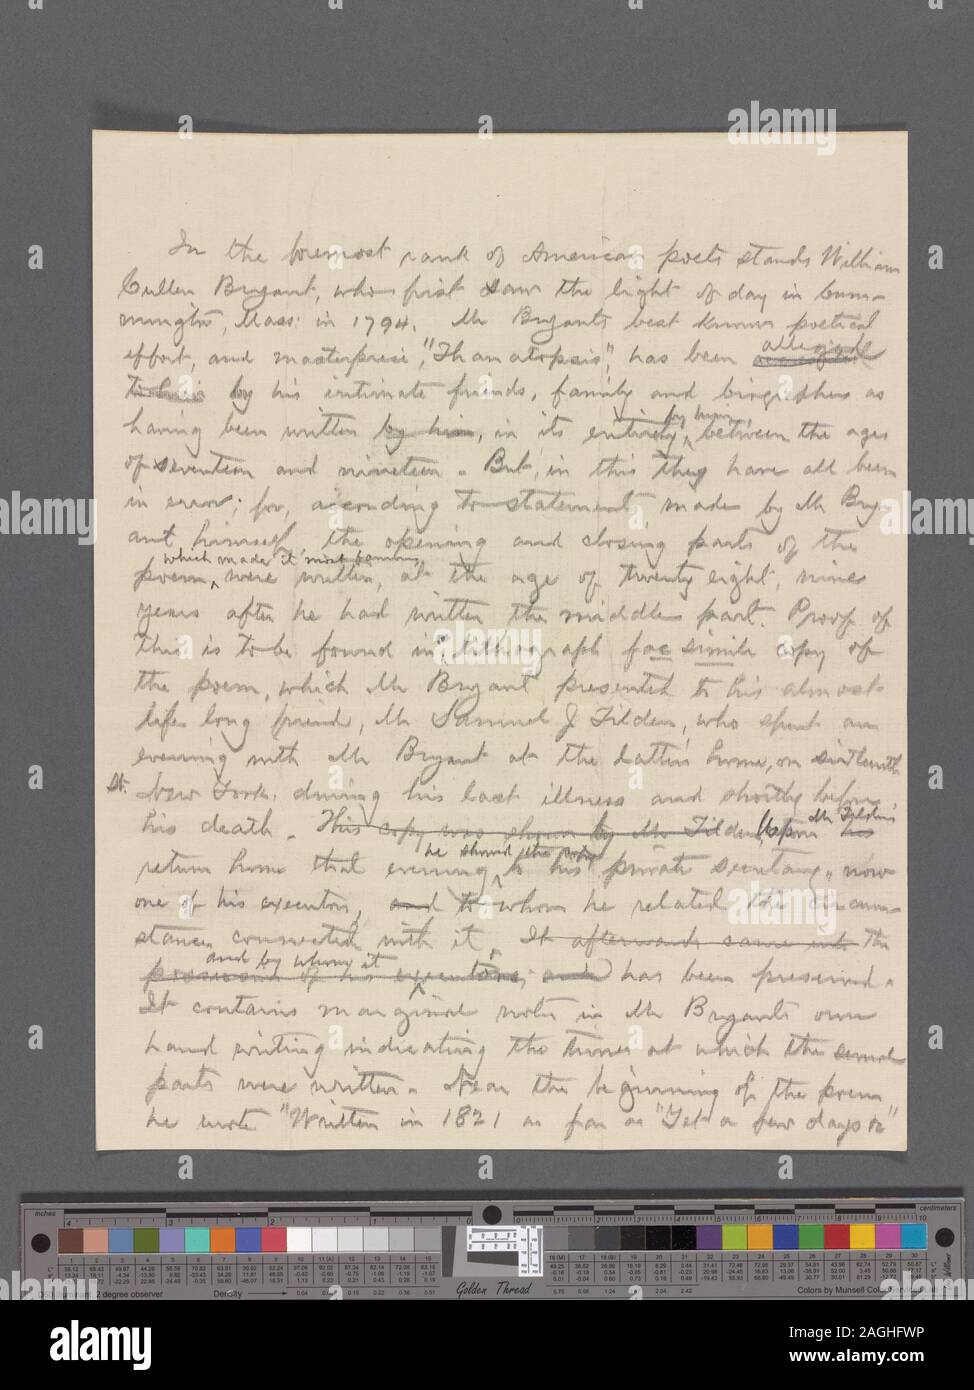 In the foremost rank of American poets stands William
Cullen Bryant, who first saw the light of day in Cum-
mington, Mass: in 1794. Mr Bryant's best known poetical
alleged
effort, and masterpiece, "Thanatopsis", has been
to have by his intimate friends, family and biographers as
by him
having been written by him, in its entirety, between the ages
of seventeen and nineteen. But, in this they have all been
in error; for, according to statement made by Mr Bry-
ant himself, the opening and closing parts of the
which made it most famous
poem were written, at the age of twenty eight, nine
years after he had written the middle part. Proof of
this is to be found in a lithograph fac simile copy of
the poem, which Mr Bryant presented to his almost
life long friend, Mr Samuel J Tilden, who spent an
evening with Mr Bryant at the latter's home, on sixteenth
St. New York, during his last illness and shortly before
Mr Tilden's
his death. This copy was shown by Mr Tilden, Upon his
he showed the poem
return home that evening to his private secretary, now
one of his executors, and to whom he related the circum-
stances connected with it. It afterwards came into the
and by whom it
possession of his executors, and has been preserved.
It contains marginal notes in Mr Bryant's own
hand writing indicating the times at which the several
parts were written. Near the beginning of the poem
he wrote "Written in 1821 as far as "Yet a few days &"
inches
centimeters
D50 Illuminant, 2 degree observer
Density
Golden Thread
Colors by Munsell Color Services Lab
alamy
Image ID: 2AGHFWP
www.alamy.com